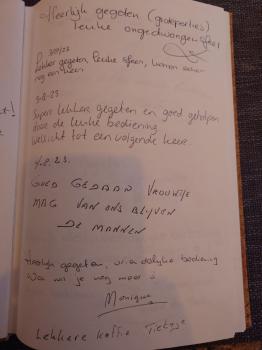 Heerlijk gegeten (grote porties)
leuke ongedwongen sfeer
Lekker gegeten, leuke sfeer, komen zeker
nog een keer
3-8-23
Super lekker gegeten en goed geholpen
door de leuke bediening
Wellicht tot een volgende keer.
4-8-23.
GOED GEDAAN VROUWTJE
MAG VAN ONS BLIJVEN
DE MANNEN
Heerlijk gegeten, vriendelijke bediening
Wa wil je nog meer
Monique
Lekkere koffie